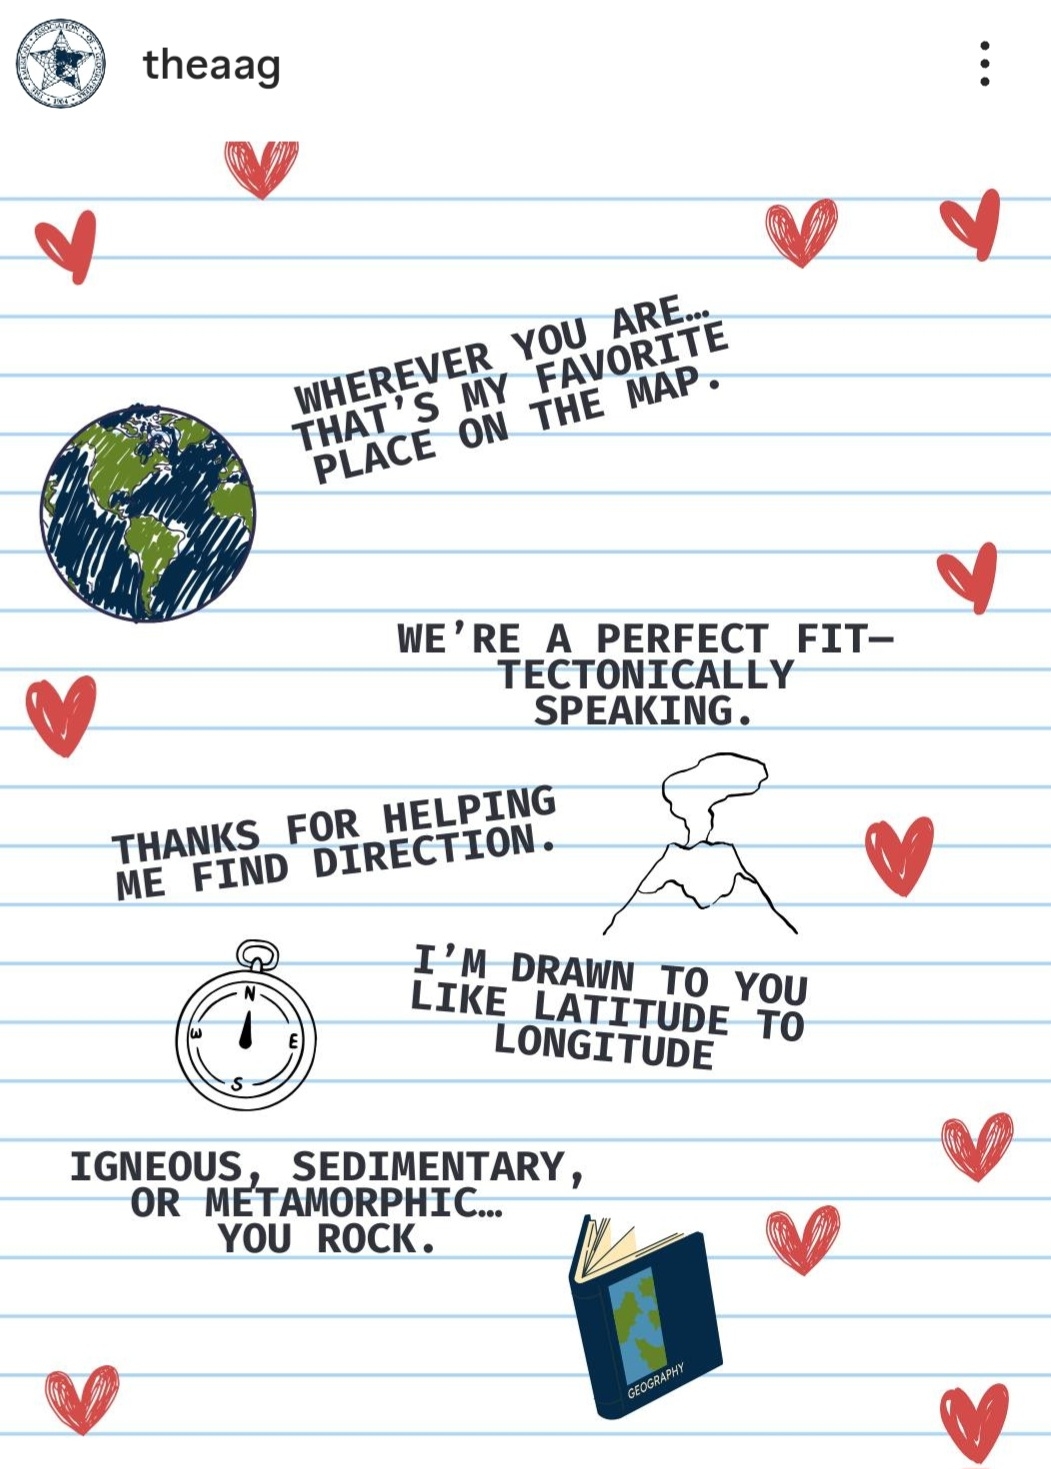 theaag
WHEREVER YOU ARE…
THAT'S MY FAVORITE
PLACE ON THE MAP.
WE'RE A PERFECT FIT—
TECTONICALLY
SPEAKING.
THANKS FOR HELPING
ME FIND DIRECTION.
N
W
E
S
I'M DRAWN TO YOU
LIKE LATITUDE TO
LONGITUDE
IGNEOUS, SEDIMENTARY,
OR METAMORPHIC…
YOU ROCK.
GEOGRAPHY